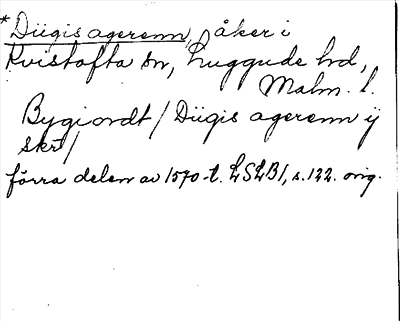 *Dügis agerenn, åker i
Kvistofta sn, Luggude hd,
Malm. l.
Bygiordt / Dügis agerenn ÿ
skr /
förra delen av 1570-t. LSLB1, s. 122. orig.